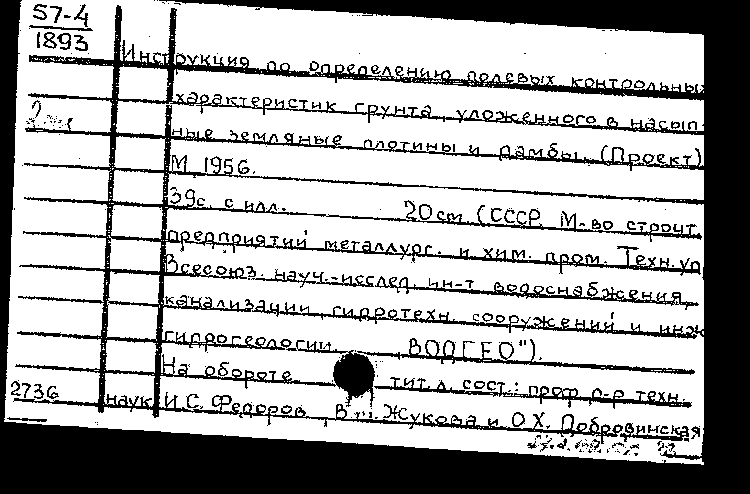 57-4
1893
Инструкция по определению полевых контрольных
характеристик грунта, уложенного в насып-
2 экз
ные земляные плотины и дамбы. (Проект)
М, 1956.
39с. с илл. 20см. (СССР. М-во строит.
предприятий металлург. и хим. пром. Техн. упр
Всесоюз. науч.-исслед. ин-т водоснабжения,
канализации, гидротехн. сооружений и инж
гидрогеологии. ВОДГЕО").
На обороте тит. л. сост.: проф. д-р техн.
2736 наук И.С. Федоров, В Жукова и О.Х. Добровинская